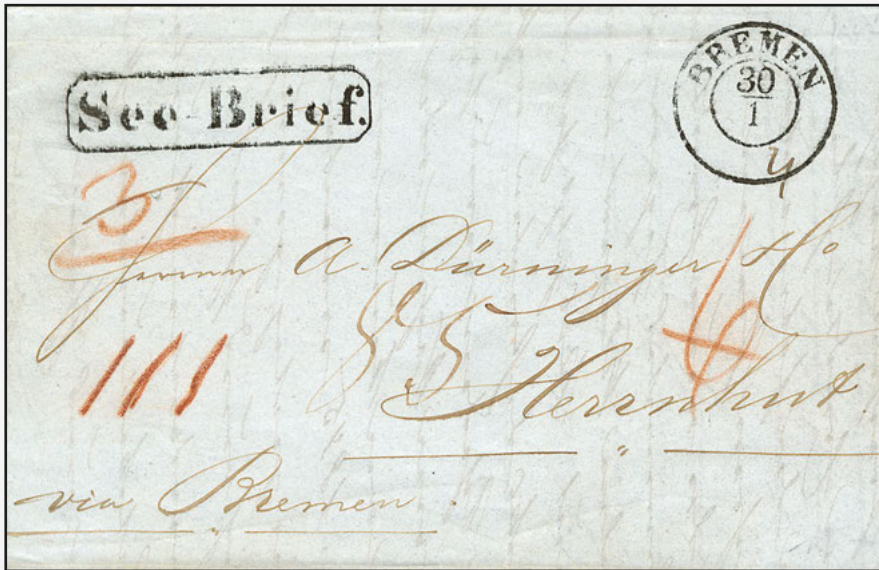 See-Brief.
BREMEN
30
1
3
Herrn A. Dürninger & Co
Herrnhut
via Bremen.